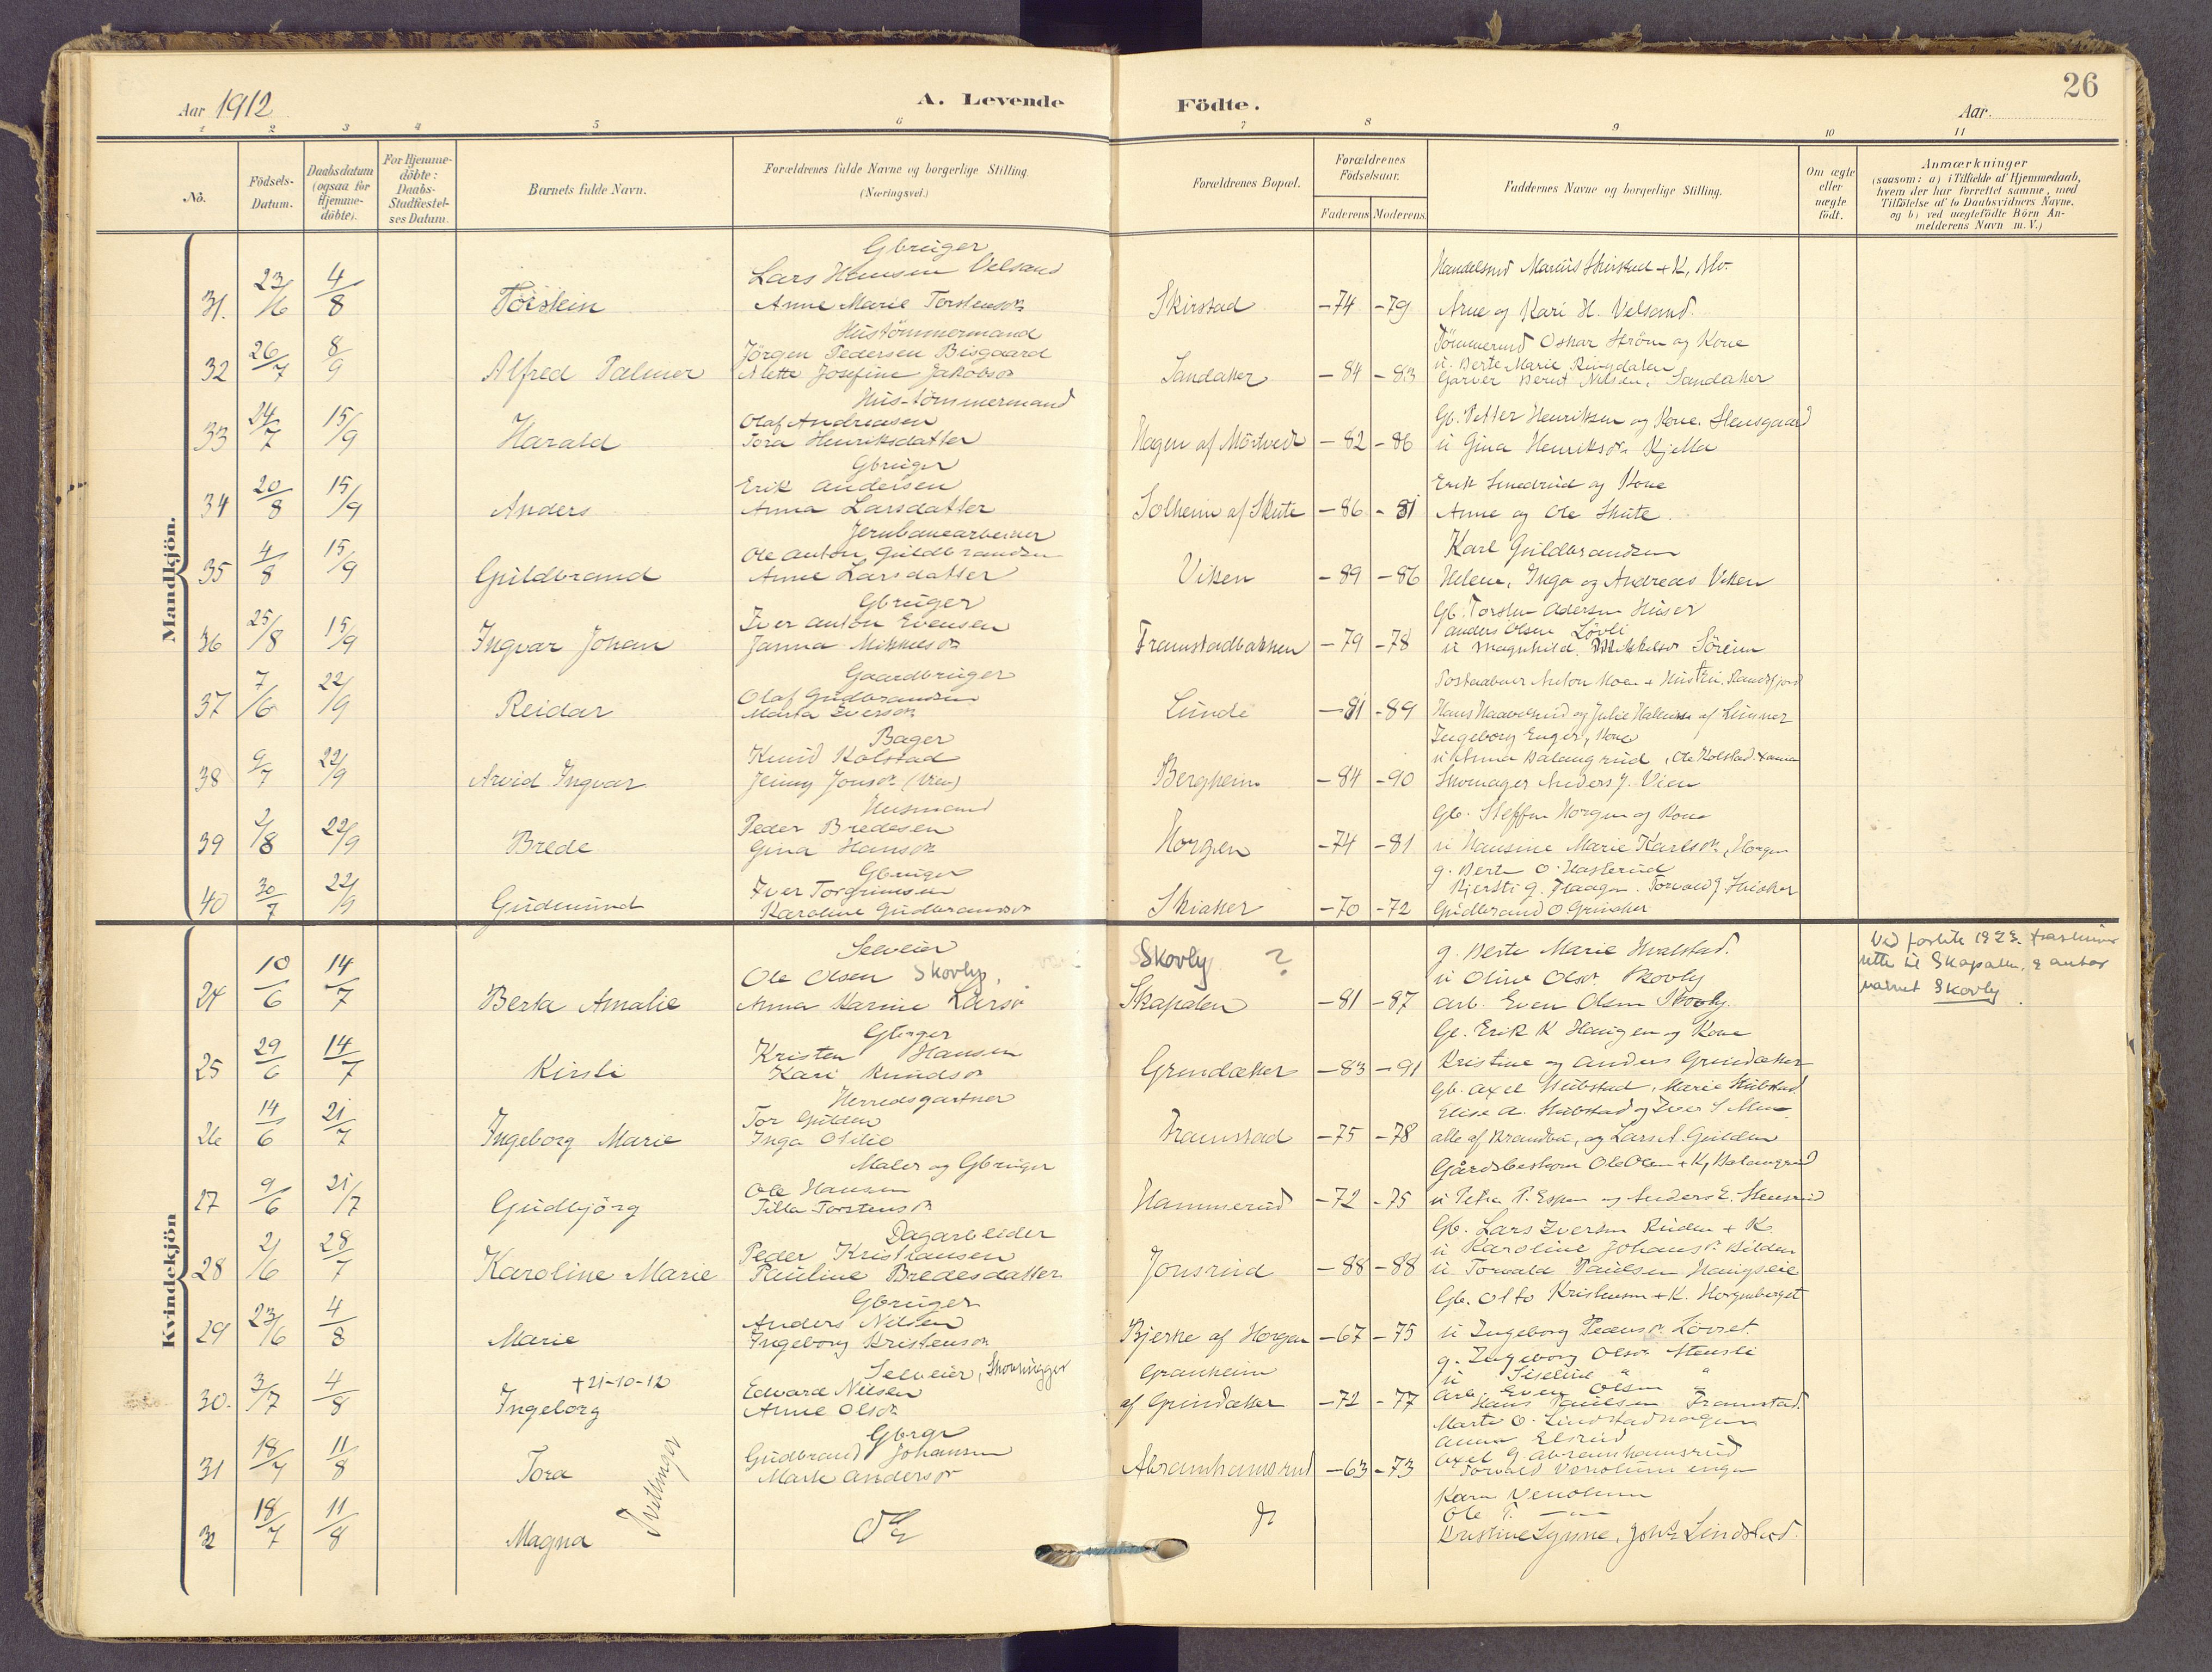 26
Aar 1912
A. Levende Födte.
Aar.
1 2 3 4 5 6 7 8 9 10 11
No.
Födsels-Datum.
Daabsdatum (ogsaa for Hjemme-döbte).
For Hjemme-döbte: Daabs-Stadfæstel-ses Datum.
Barnets fulde Navn.
Forældrenes fulde Navne og borgerlige Stilling (Næringsvei.)
Forældrenes Bopæl.
Forældrenes Födselsaar.
Faderens Moderens
Faddernes Navne og borgerlige Stilling.
Om ægte eller uægte födt.
Anmærkninger
(saasom: a) i Tilfælde af Hjemmedaab, hvem der har forrettet samme, med Tilföielse af to Daabsvidners Navne, og b) ved uægtefödte Börn An-melderens Navn m. V.)
Mandkjön.
Gbruger
Lars Hansen Velsand
31. 23/6 4/8 Torstein Anne Marie Torstensdr Skirstad -74 -79 Arne og Kari H. Velsand.
Hustömmermand
Jörgen Pedersen Bisgaard
Tömmermd Oskar Ström og Kone
32 26/7 8/9 Alfred Palmer Alette Josefine Jakobsdr Sandaker -84 -83 Garver Bernt Nilsen, Sandaker
u. Berte Marie Ringdalen
Hus-tömmermand
Olaf Andreasen
Gb. Petter Henriksen og Kone. Stensgaard
33 24/7 15/9 Harald Tora Henriksdatter Hagen af Mörtvedt -82 -86 u Gina Henriksdr. Kjella
Gbruger
Erik Andersen
Erik Smedrud og Kone
34 20/8 15/9 Anders Anna Larsdatter Solheim af Skute -86 -81 Anne og Ole Skute.
Jernbanearbeider
Ole Anton Guldbrandsen
Karl Guldbrandsen
35 4/8 15/9 Guldbrand Anne Larsdatter Viken -89 -86 Helene, Inga og Andreas Viken
Gbruger
Iver Anton Evensen
Anders Olsen Lövli
36 25/8 15/9 Ingvar Johan Janna Mikkelsdr Framstadbakken -79 -78 u Magnhild Mikkelsdr. Söreim
Gaardbruger
Olaf Gudbrandsen
37 7/6 22/9 Reidar Marta Iversdr Lunde -81 -89
Bager
Knud Kolstad
Ingeborg Enger, Kone
38 9/7 22/9 Arvid Ingvar Jenny Jonsdr (Vien) Bergheim -84 -90 Skomager Anders J. Vien
Husmand
Peder Bredesen
Gb. Steffen Horgen og Kone
39 2/8 22/9 Brede Gina Hansdr Horgen -74 -81 u Hansine Marie Karlsdr, Horgen
Gbruger
Iver Torgrimsen
40 30/7 22/9 Gudmund Karoline Gudbrandsdr Skiaker -70 -72 Gudbrand O Grinaker
Kvindekjön
Selveier
Ole Olsen Skovly,
Skovly ?
g. Berte Marie Hvalstad.
u Oline Olsdr. Skovly
24 10/6 14/7 Berta Amalie Anna Karine Larsdr Skapalen -81 -87 arb. Even Olsen Skovly.
navnet Skovly
Gbrger
Kristen Hansen
Gb. Erik K Haugen og Kone
25 29/6 14/7 Kirsti Kari Knudsdr Grindaker -83 -91 Kristine og Anders Grindaker
Herredsgartner
Tor Gulden
26 14/6 21/7 Ingeborg Marie Inga Otilie Framstad -75 -78 alle af Brandbu, og Lars A. Gulden
Maler og Gbruger
Ole Hansen
27 9/6 21/7 Gudbjörg Tilla Torstensdr Hammerud -72 -75
Dagarbeider
Peder Kristiansen
Gb. Lars Iversen Ruden + K.
u Karoline Johansdr. Bilden
28 2/6 28/7 Karoline Marie Pauline Bredesdatter Jonsrud -88 -88 u Torvald Paulsen Haugseie
Gbruger
Anders Nilsen
Gb. Otto Kristiansen + K. Horgenberget
29 23/6 4/8 Marie Ingeborg Kristensdr Bjerke af Horgen -67 -75 u Ingeborg Pedersdr. Lövset.
Selveier, Skovhugger
+21-10-12 Edvard Nilsen Granheim
g. Ingeborg Olsdr. Stensli
30. 3/7 4/8 Ingeborg Anne Olsdr af Grindaker -72 -77 Hans Paulsen Framstad.
arb. Even Olsen "
Gbrgr
Gudbrand Johansen
Anna Elsrud
Axel G Abrahamsrud
31 18/7 11/8 Tora Marte Andersdr Abrahamsrud -63 -73
Tvillinger
Kari Venolum
Ole T. —"—
32 18/7 11/8 Magna do do Kristine Lynne, Johs. Lindstad.